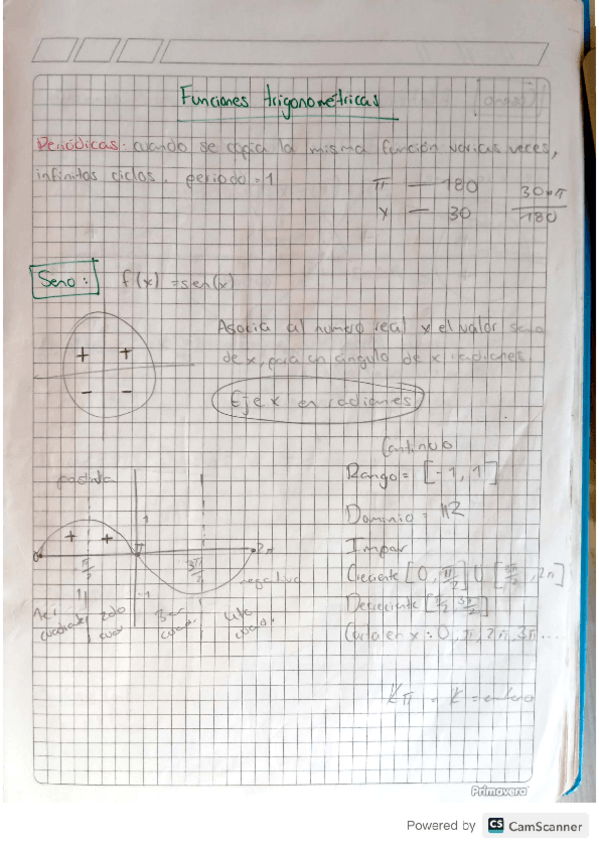 Funciones trigonométricas
Periódicas: cuando se copia la misma función varias veces,
infinitos ciclos. periodo = 1
π — 180
x — 30
30·π
180
Seno: f(x) = sen(x)
+ +
- -
Asocia al número real x el valor seno
de x, para un ángulo de x radianes.
Eje x en radianes
Continua
Rango = [-1, 1]
Dominio = ℝ
Impar
Creciente [0, π/2] ∪ [3π/2, 2π]
Decreciente [π/2, 3π/2]
Corta en x: 0, π, 2π, 3π....
Kπ = K = entero
positiva
1
+ +
π/2
π
3π/2
2π
negativa
-1
1er cuadrante
2do cua
3er cuad.
4to cuad.
Primavera
Powered by CS CamScanner